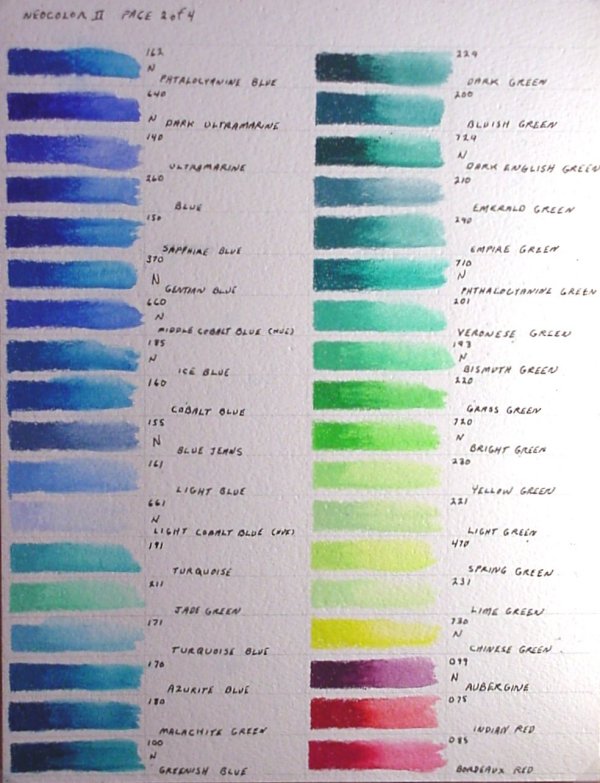 NEOCOLOR II PAGE 2 of 4
162
N
PHTALOCYANINE BLUE
640
N DARK ULTRAMARINE
140
ULTRAMARINE
260
BLUE
150
SAPPHIRE BLUE
370
N GENTIAN BLUE
660
N
MIDDLE COBALT BLUE (HUE)
185
N
ICE BLUE
160
COBALT BLUE
155
N
BLUE JEANS
161
LIGHT BLUE
661
N
LIGHT COBALT BLUE (HUE)
191
TURQUOISE
211
JADE GREEN
171
TURQUOISE BLUE
170
AZURITE BLUE
180
MALACHITE GREEN
100
N
GREENISH BLUE
229
DARK GREEN
200
BLUISH GREEN
729
N
DARK ENGLISH GREEN
210
EMERALD GREEN
290
EMPIRE GREEN
710
N
PHTHALOCYANINE GREEN
201
VERONESE GREEN
193
N
BISMUTH GREEN
220
GRASS GREEN
720
N
BRIGHT GREEN
230
YELLOW GREEN
221
LIGHT GREEN
470
SPRING GREEN
231
LIME GREEN
730
N
CHINESE GREEN
099
N
AUBERGINE
075
INDIAN RED
085
BORDEAUX RED